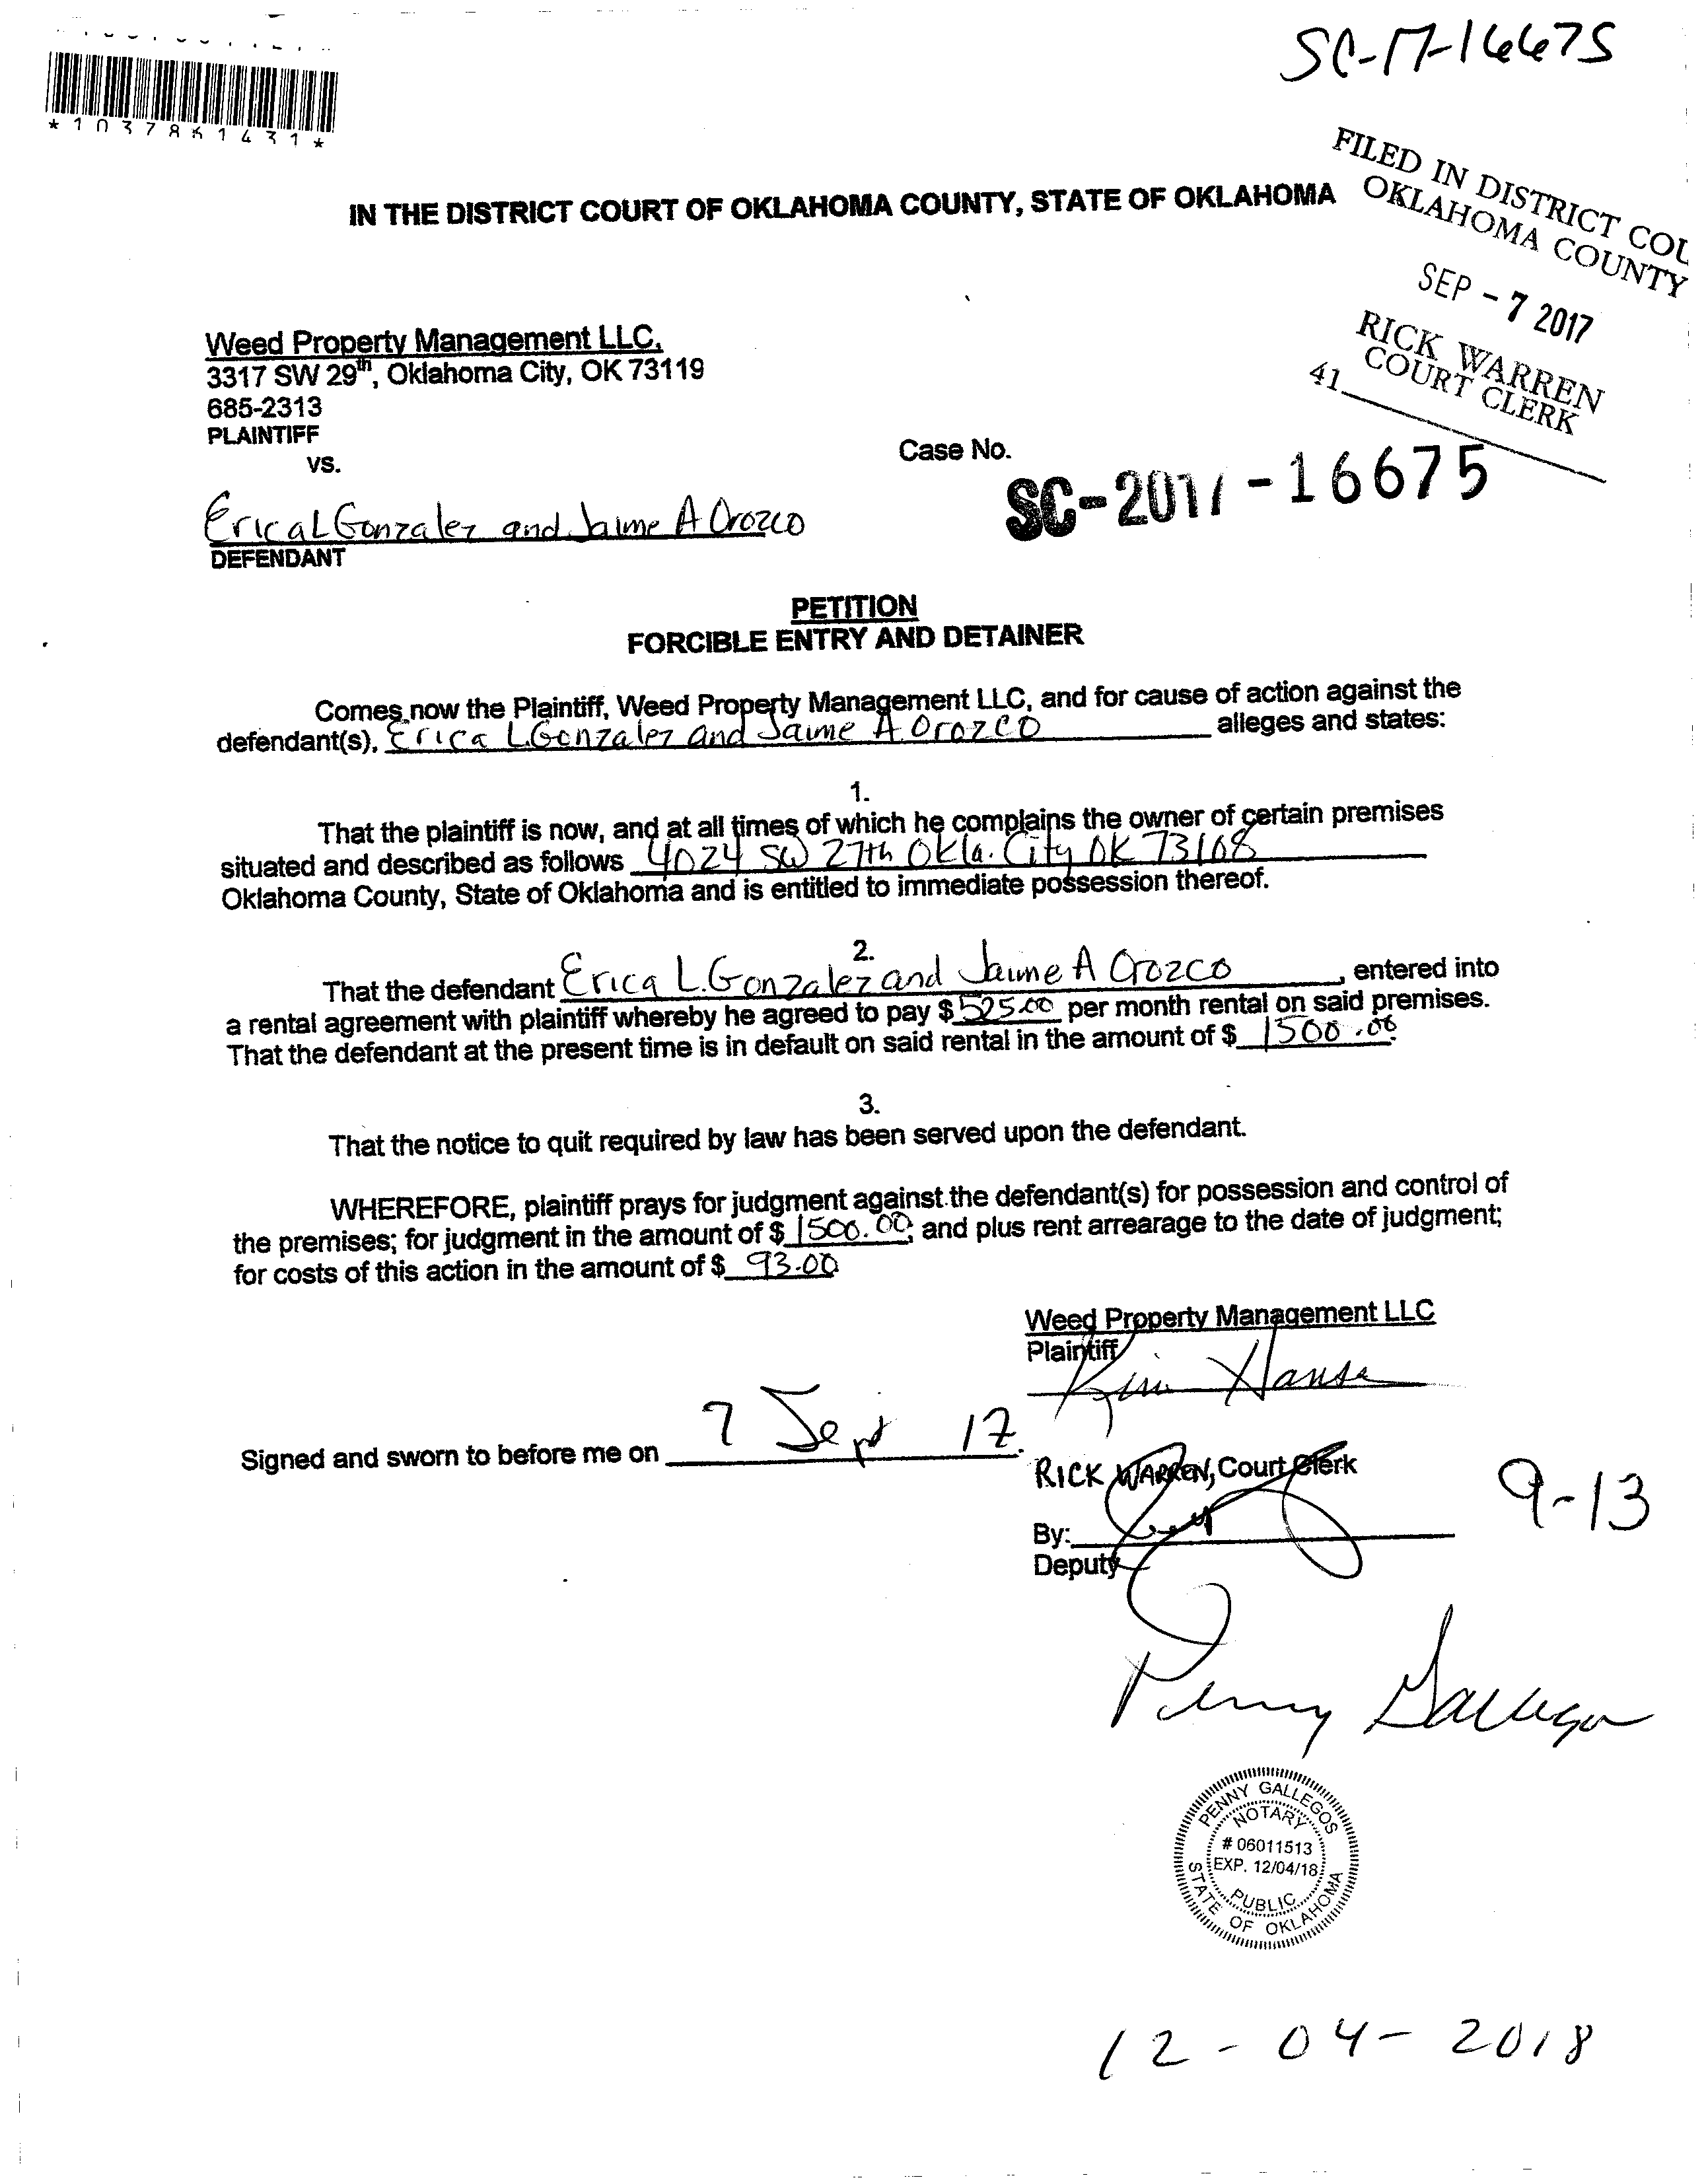 SC-17-16675
*1037861431*
FILED IN DISTRICT COU
OKLAHOMA COUNTY
IN THE DISTRICT COURT OF OKLAHOMA COUNTY, STATE OF OKLAHOMA
SEP - 7 2017
RICK WARREN
COURT CLERK
41
Weed Property Management LLC,
3317 SW 29th, Oklahoma City, OK 73119
685-2313
PLAINTIFF
vs.
Case No.
SC-2017-16675
Erica L Gonzalez and Jaime A Orozco
DEFENDANT
PETITION
FORCIBLE ENTRY AND DETAINER
Comes now the Plaintiff, Weed Property Management LLC, and for cause of action against the
defendant(s), Erica L Gonzalez and Jaime A Orozco alleges and states:
1.
That the plaintiff is now, and at all times of which he complains the owner of certain premises
situated and described as follows 4024 SW 27th Okla. City OK 73108
Oklahoma County, State of Oklahoma and is entitled to immediate possession thereof.
2.
That the defendant Erica L. Gonzalez and Jaime A Orozco, entered into
a rental agreement with plaintiff whereby he agreed to pay $ 525.00 per month rental on said premises.
That the defendant at the present time is in default on said rental in the amount of $ 1500.00.
3.
That the notice to quit required by law has been served upon the defendant.
WHEREFORE, plaintiff prays for judgment against the defendant(s) for possession and control of
the premises; for judgment in the amount of $ 1500.00; and plus rent arrearage to the date of judgment;
for costs of this action in the amount of $ 93.00
Weed Property Management LLC
Plaintiff
Signed and sworn to before me on 7 Sept 17.
RICK WARREN, Court Clerk
9-13
By:
Deputy
Penny Gallegos
PENNY GALLEGOS
NOTARY
# 06011513
EXP. 12/04/18
PUBLIC
STATE OF OKLAHOMA
12-04-2018